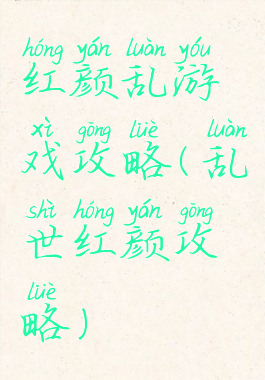 hóng yán luàn yóu
红颜乱游
xì gōng lüè luàn
戏攻略(乱
shì hóng yán gōng
世红颜攻
lüè
略)